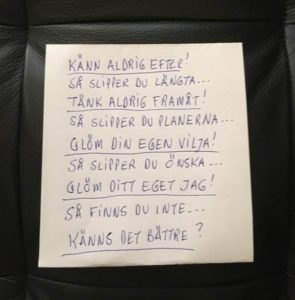 KÄNN ALDRIG EFTER!
SÅ SLIPPER DU LÄNGTA...
TÄNK ALDRIG FRAMÅT!
SÅ SLIPPER DU PLANERNA...
GLÖM DIN EGEN VILJA!
SÅ SLIPPER DU ÖNSKA...
GLÖM DITT EGET JAG!
SÅ FINNS DU INTE...
KÄNNS DET BÄTTRE?